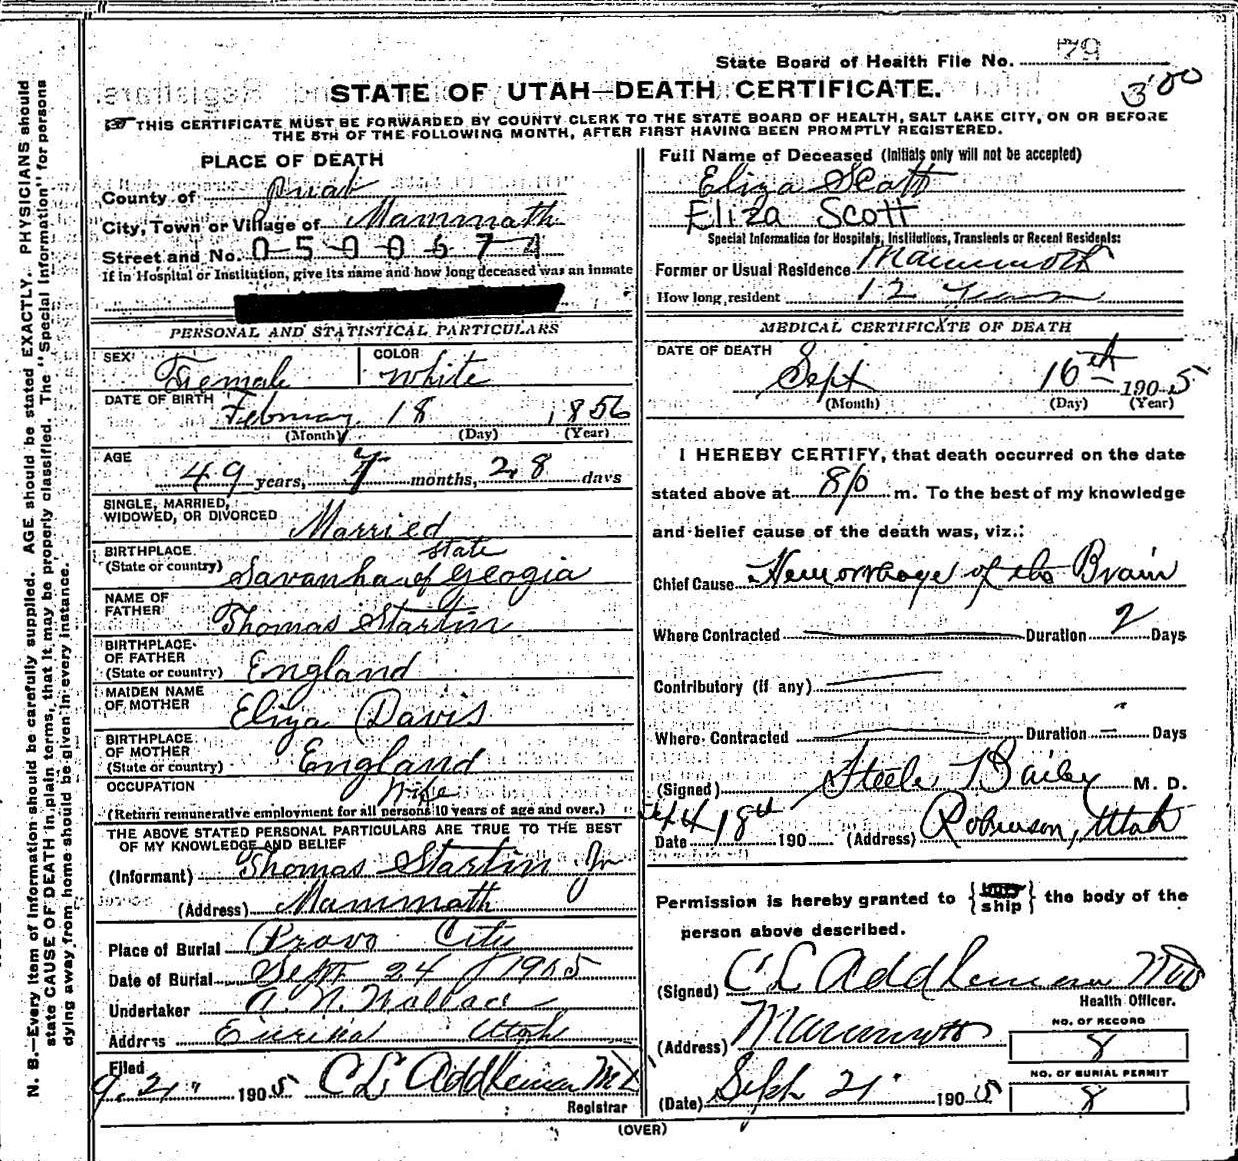 State Board of Health File No. 79
STATE OF UTAH—DEATH CERTIFICATE.
3'00
THIS CERTIFICATE MUST BE FORWARDED BY COUNTY CLERK TO THE STATE BOARD OF HEALTH, SALT LAKE CITY, ON OR BEFORE
THE 5TH OF THE FOLLOWING MONTH, AFTER FIRST HAVING BEEN PROMPTLY REGISTERED.
PLACE OF DEATH
County of Juab
City, Town or Village of Mammoth
Street and No. 0500674
If in Hospital or Institution, give its name and how long deceased was an inmate
PERSONAL AND STATISTICAL PARTICULARS
SEX: Female COLOR White
DATE OF BIRTH February 18 1856
(Month) (Day) (Year)
AGE
49 years, 7 months, 28 days
SINGLE, MARRIED,
WIDOWED, OR DIVORCED Married
BIRTHPLACE state
(State or country) Savanha of Geogia
NAME OF
FATHER Thomas Startin
BIRTHPLACE
OF FATHER
(State or country) England
MAIDEN NAME
OF MOTHER Eliza Davis
BIRTHPLACE
OF MOTHER
(State or country) England
OCCUPATION Wife
(Return remunerative employment for all persons 10 years of age and over.)
THE ABOVE STATED PERSONAL PARTICULARS ARE TRUE TO THE BEST
OF MY KNOWLEDGE AND BELIEF
(Informant) Thomas Startin Jr
(Address) Mammoth
Place of Burial Provo City
Date of Burial Sept 24 1905
Undertaker A. N. Wallace
Address Eureka Utah
Filed
9.21" 1905 C L Addleman MD
Registrar
Full Name of Deceased (Initials only will not be accepted)
Eliza Scott
ELIZA SCOTT
Special Information for Hospitals, Institutions, Transients or Recent Residents:
Former or Usual Residence Mammoth
How long resident 12 Years
MEDICAL CERTIFICATE OF DEATH
DATE OF DEATH
Sept 16th 1905
(Month) (Day) (Year)
I HEREBY CERTIFY, that death occurred on the date
stated above at 8 p m. To the best of my knowledge
and belief cause of the death was, viz.:
Chief Cause Hemorrhage of the Brain
Where Contracted Duration 2 Days
Contributory (if any)
Where Contracted Duration — Days
(Signed) Steele Bailey M. D.
Date 18th 190 (Address) Robinson, Utah
Permission is hereby granted to { ship } the body of the
person above described.
(Signed) C L Addleman MD
Health Officer.
(Address) Mammoth
NO. OF RECORD
8
NO. OF BURIAL PERMIT
(Date) Sept 21" 1905
8
(OVER)
N. B.—Every item of information should be carefully supplied. AGE should be stated EXACTLY. PHYSICIANS should
state CAUSE OF DEATH in plain terms, that it may be properly classified. The "Special Information" for persons
dying away from home should be given in every instance.